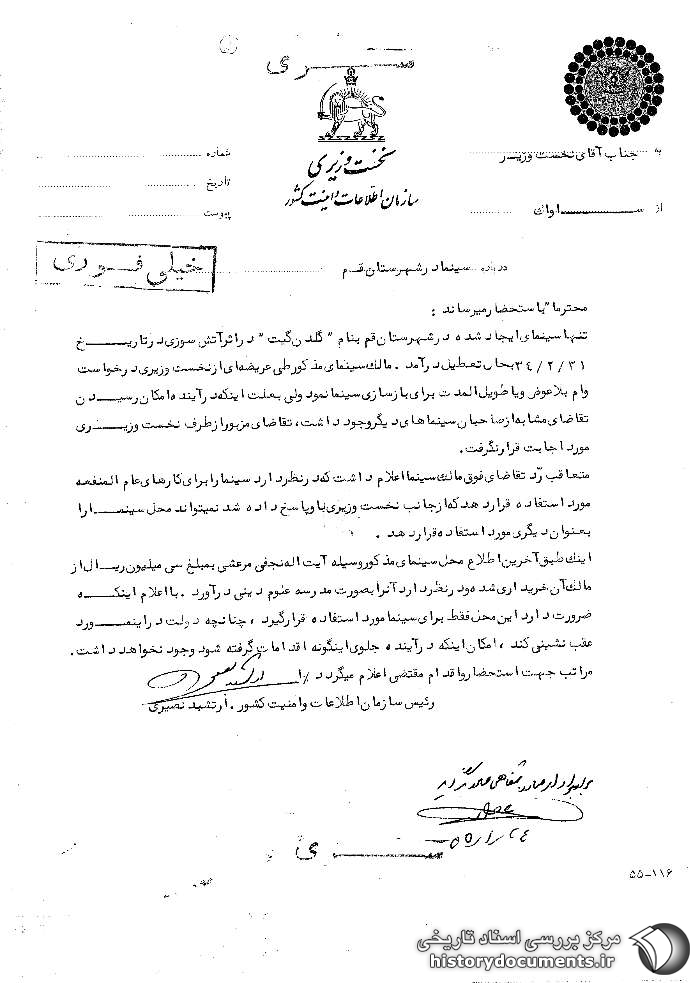 سری
نخست وزیری
سازمان اطلاعات و امنیت کشور
به جناب آقای نخست وزیر
از ساواک
شماره
تاریخ
پیوست
خیلی فوری
درباره سینما در شهرستان قم
محترما" باستحضار میرساند :
تنها سینمای ایجاد شده در شهرستان قم بنام " گلدن گیت " در اثر آتش سوزی در تاریخ
۳۴/۲/۳۱ بحال تعطیل درآمد . مالک سینمای مذکور طی عریضه ای از نخست وزیری درخواست
وام بلاعوض و یا طویل المدت برای بازسازی سینما نمود ولی بعلت اینکه در آینده امکان رسیدن
تقاضای مشابه از صاحبان سینماهای دیگر وجود داشت ، تقاضای مزبور از طرف نخست وزیری
مورد اجابت قرار نگرفت.
متعاقب رد تقاضای فوق مالک سینما اعلام داشت که در نظر دارد سینما را برای کارهای عام المنفعه
مورد استفاده قرار دهد که از جانب نخست وزیری باو پاسخ داده شد نمیتواند محل سینما را
بعنوان دیگری مورد استفاده قرار دهد .
اینک طبق آخرین اطلاع محل سینمای مذکور وسیله آیت اله نجفی مرعشی بمبلغ سی میلیون ریال از
مالک آن خریداری شده و در نظر دارد آنرا بصورت مدرسه علوم دینی درآورد . با اعلام اینکه
ضرورت دارد این محل فقط برای سینما مورد استفاده قرار گیرد ، چنانچه دولت در این مورد
عقب نشینی کند ، امکان اینکه در آینده جلوی اینگونه اقدامات گرفته شود وجود نخواهد داشت .
مراتب جهت استحضار و اقدام مقتضی اعلام میگردد
رئیس سازمان اطلاعات و امنیت کشور . ارتشبد نصیری
۵۵/۱/۲۴
سری
۵۵-۱۱۶
مرکز بررسی اسناد تاریخی
historydocuments.ir